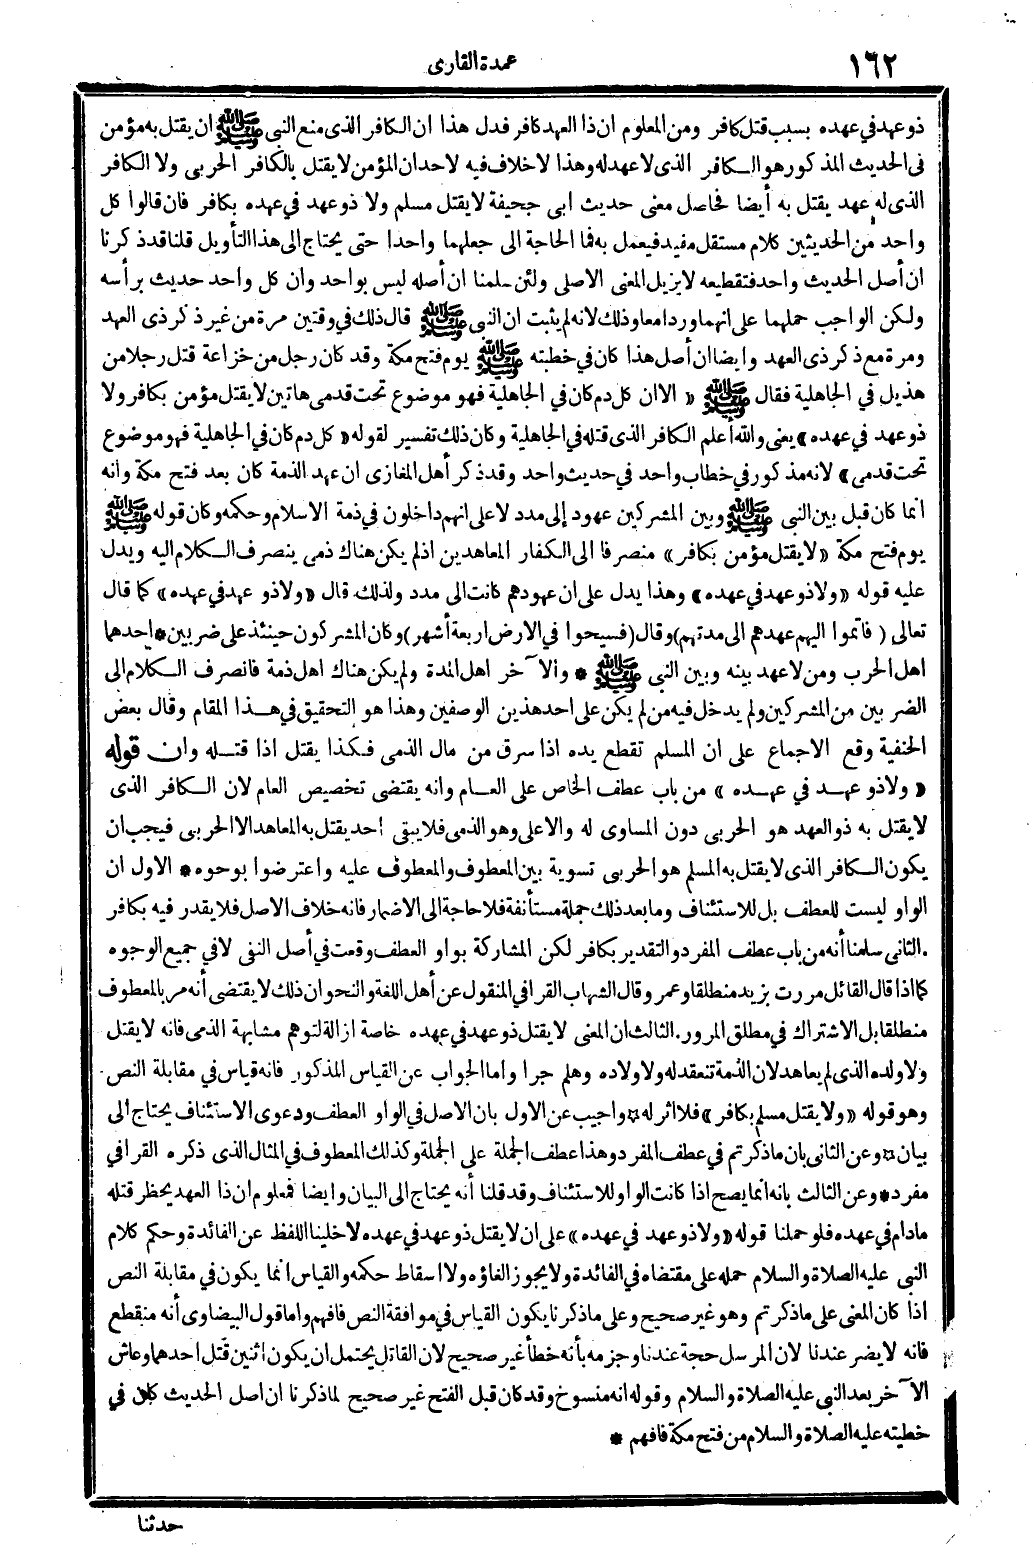 ١٦٢
عمدة القارى
ذو عهد في عهده بسبب قتل كافر ومن المعلوم ان ذا العهد كافر فدل هذا ان الكافر الذى منع النبي ﷺ ان يقتل به مؤمن
فى الحديث المذكور هو الكافر الذى لا عهد له وهذا لا خلاف فيه لاحد ان المؤمن لا يقتل بالكافر الحربى ولا الكافر
الذى له عهد يقتل به أيضا فحاصل معنى حديث ابى جحيفة لا يقتل مسلم ولا ذو عهد في عهده بكافر فان قالوا كل
واحد من الحديثين كلام مستقل مفيد فيعمل به فما الحاجة الى جعلهما واحدا حتى يحتاج الى هذا التأويل قلنا قد ذكرنا
ان أصل الحديث واحد فتقطيعه لا يزيل المعنى الاصلى ولئن سلمنا ان أصله ليس بواحد وان كل واحد حديث برأسه
ولكن الواجب حملهما على انهما وردا معا وذلك لانه لم يثبت ان النبي ﷺ قال ذلك في وقتين مرة من غير ذكر ذى العهد
ومرة مع ذكر ذى العهد وايضا ان أصل هذا كان في خطبته ﷺ يوم فتح مكة وقد كان رجل من خزاعة قتل رجلا من
هذيل في الجاهلية فقال ﷺ « الا ان كل دم كان في الجاهلية فهو موضوع تحت قدمى هاتين لا يقتل مؤمن بكافر ولا
ذو عهد في عهده » يعنى والله أعلم الكافر الذى قتله في الجاهلية وكان ذلك تفسير لقوله « كل دم كان في الجاهلية فهو موضوع
تحت قدمى » لانه مذكور في خطاب واحد في حديث واحد وقد ذكر أهل المغازى ان عهد الذمة كان بعد فتح مكة وانه
انما كان قبل بين النبي ﷺ وبين المشركين عهود إلى مدد لا على انهم داخلون في ذمة الاسلام وحكمه وكان قوله ﷺ
يوم فتح مكة « لا يقتل مؤمن بكافر » منصرفا الى الكفار المعاهدين اذ لم يكن هناك ذمى ينصرف الكلام اليه ويدل
عليه قوله « ولا ذو عهد في عهده » وهذا يدل على ان عهودهم كانت الى مدد ولذلك قال « ولا ذو عهد في عهده » كما قال
تعالى ( فاتموا اليهم عهدهم الى مدتهم) وقال (فسيحوا في الارض اربعة أشهر) وكان المشركون حينئذ على ضربين * احدهما
اهل الحرب ومن لا عهد بينه وبين النبي ﷺ * والآخر اهل المدة ولم يكن هناك اهل ذمة فانصرف الكلام الى
الضربين من المشركين ولم يدخل فيه من لم يكن على احد هذين الوصفين وهذا هو التحقيق في هذا المقام وقال بعض
الحنفية وقع الاجماع على ان المسلم تقطع يده اذا سرق من مال الذمى فكذا يقتل اذا قتله وان قوله
« ولا ذو عهد في عهده » من باب عطف الخاص على العام وانه يقتضى تخصيص العام لان الكافر الذى
لا يقتل به ذو العهد هو الحربى دون المساوى له والاعلى وهو الذمى فلا يبقى أحد يقتل به المعاهد الا الحربى فيجب ان
يكون الكافر الذى لا يقتل به المسلم هو الحربى تسوية بين المعطوف والمعطوف عليه واعترضوا بوجوه * الاول ان
الواو ليست للعطف بل للاستئناف وما بعد ذلك جملة مستأنفة فلا حاجة الى الاضمار فانه خلاف الاصل فلا يقدر فيه بكافر
. الثانى سلمنا أنه من باب عطف المفرد والتقدير بكافر لكن المشاركة بواو العطف وقعت في أصل النفى لا في جميع الوجوه
كما اذا قال القائل مررت بزيد منطلقا وعمر وقال الشهاب القرافي المنقول عن أهل اللغة والنحو ان ذلك لا يقتضى أنه مر بالمعطوف
منطلقا بل الاشتراك في مطلق المرور . الثالث ان المعنى لا يقتل ذو عهد في عهده خاصة ازالة لتوهم مشابهة الذمى فانه لا يقتل
ولا ولده الذى لم يعاهد لان الذمة تنعقد له ولاولاده وهلم جرا واما الجواب عن القياس المذكور فانه قياس في مقابلة النص
وهو قوله « ولا يقتل مسلم بكافر » فلا اثر له * واجيب عن الاول بان الاصل في الواو العطف ودعوى الاستئناف يحتاج الى
بيان * وعن الثانى بان ما ذكرتم في عطف المفرد وهذا عطف الجملة على الجملة وكذلك المعطوف في المثال الذى ذكره القرافي
مفرد * وعن الثالث بانه انما يصح اذا كانت الواو للاستئناف وقد قلنا أنه يحتاج الى البيان وايضا فمعلوم ان ذا العهد يحظر قتله
مادام في عهده فلو حملنا قوله « ولا ذو عهد في عهده » على ان لا يقتل ذو عهد في عهده لاخلينا اللفظ عن الفائدة وحكم كلام
النبي عليه الصلاة والسلام حمله على مقتضاه في الفائدة ولا يجوز الغاؤه ولا اسقاط حكمه والقياس انما يكون في مقابلة النص
اذا كان المعنى على ما ذكرتم وهو غير صحيح وعلى ما ذكرنا يكون القياس في موافقة النص فافهم واما قول البيضاوى أنه منقطع
فانه لا يضر عندنا لان المرسل حجة عندنا وجزمه بأنه خطأ غير صحيح لان القاتل يحتمل ان يكون اثنين قتل احدهما وعاش
الآخر بعد النبي عليه الصلاة والسلام وقوله انه منسوخ وقد كان قبل الفتح غير صحيح لما ذكرنا ان اصل الحديث كان في
خطبته عليه الصلاة والسلام من فتح مكة فافهم *
حدثنا